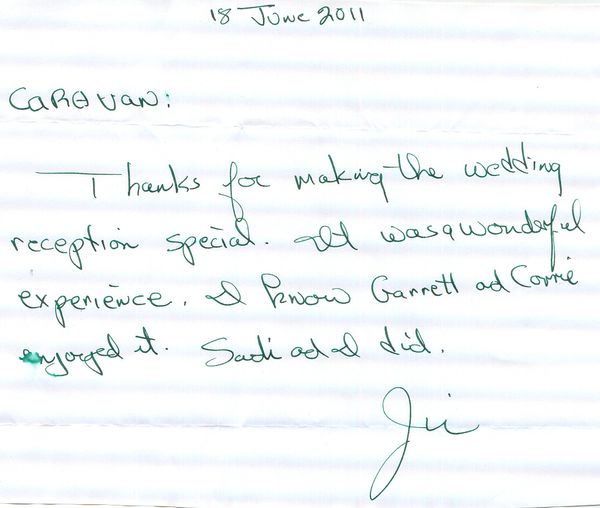 18 June 2011
CARAVAN:
Thanks for making the wedding
reception special. It was a wonderful
experience. I know Garrett ad Corrie
enjoyed it. Sadi ad I did.